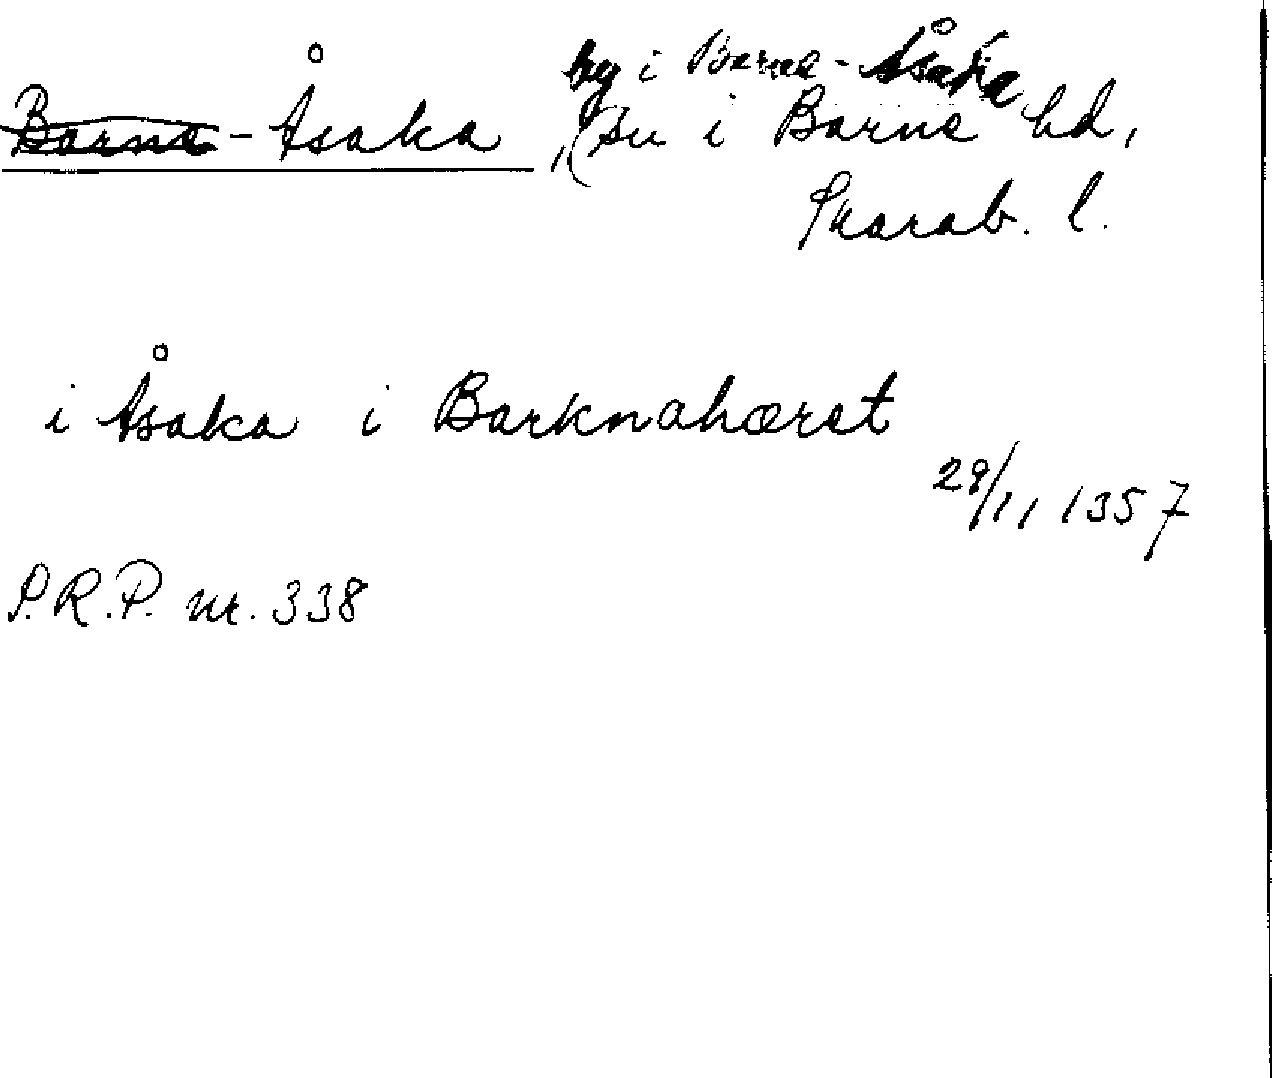 Barne-Åsaka, by i Barne-Åsaka
(su i Barne hd,
Skarab. l.
i Åsaka i Barknahærat
29/11 1357
P.R.P. nr. 338